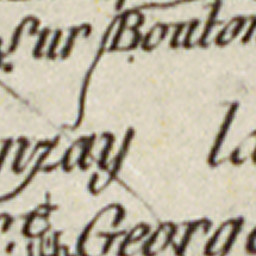 sur Bouton
nzay la
Georg